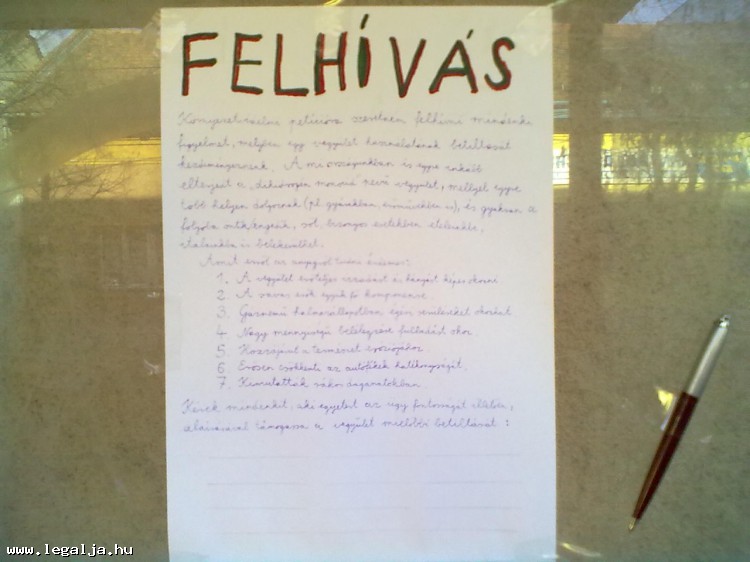 FELHÍVÁS
Környezetvédelmi petícióra szeretném felhívni mindenki
figyelmét, melyben egy vegyület használatának betiltását
kezdeményezzük. A mi országunkban is egyre inkább
elterjedt a dihidrogén monoxid nevű vegyület, mellyel egyre
több helyen dolgoznak (pl. gyárakban, erőművekben is), és gyakran a
folyóba is, sőt, bizonyos esetekben ételeinkbe,
italainkba is belekerülhet.
Amit erről az anyagról tudni érdemes:
1. A vegyület erőteljes izzadást és hányást képes okozni
2. A savas esők egyik fő komponense
3. Gáznemű halmazállapotban égési sérüléseket okozhat
4. Nagy mennyiségű belélegzése fulladást okoz
5. Hozzájárul a természet eróziójához
6. Erősen csökkenti az autófékek hatékonyságát.
7. Kimutatták rákos daganatokban
Kérek mindenkit, aki egyetért az ügy fontosságát illetően,
aláírásával támogassa a vegyület mielőbbi betiltását:
www.legalja.hu